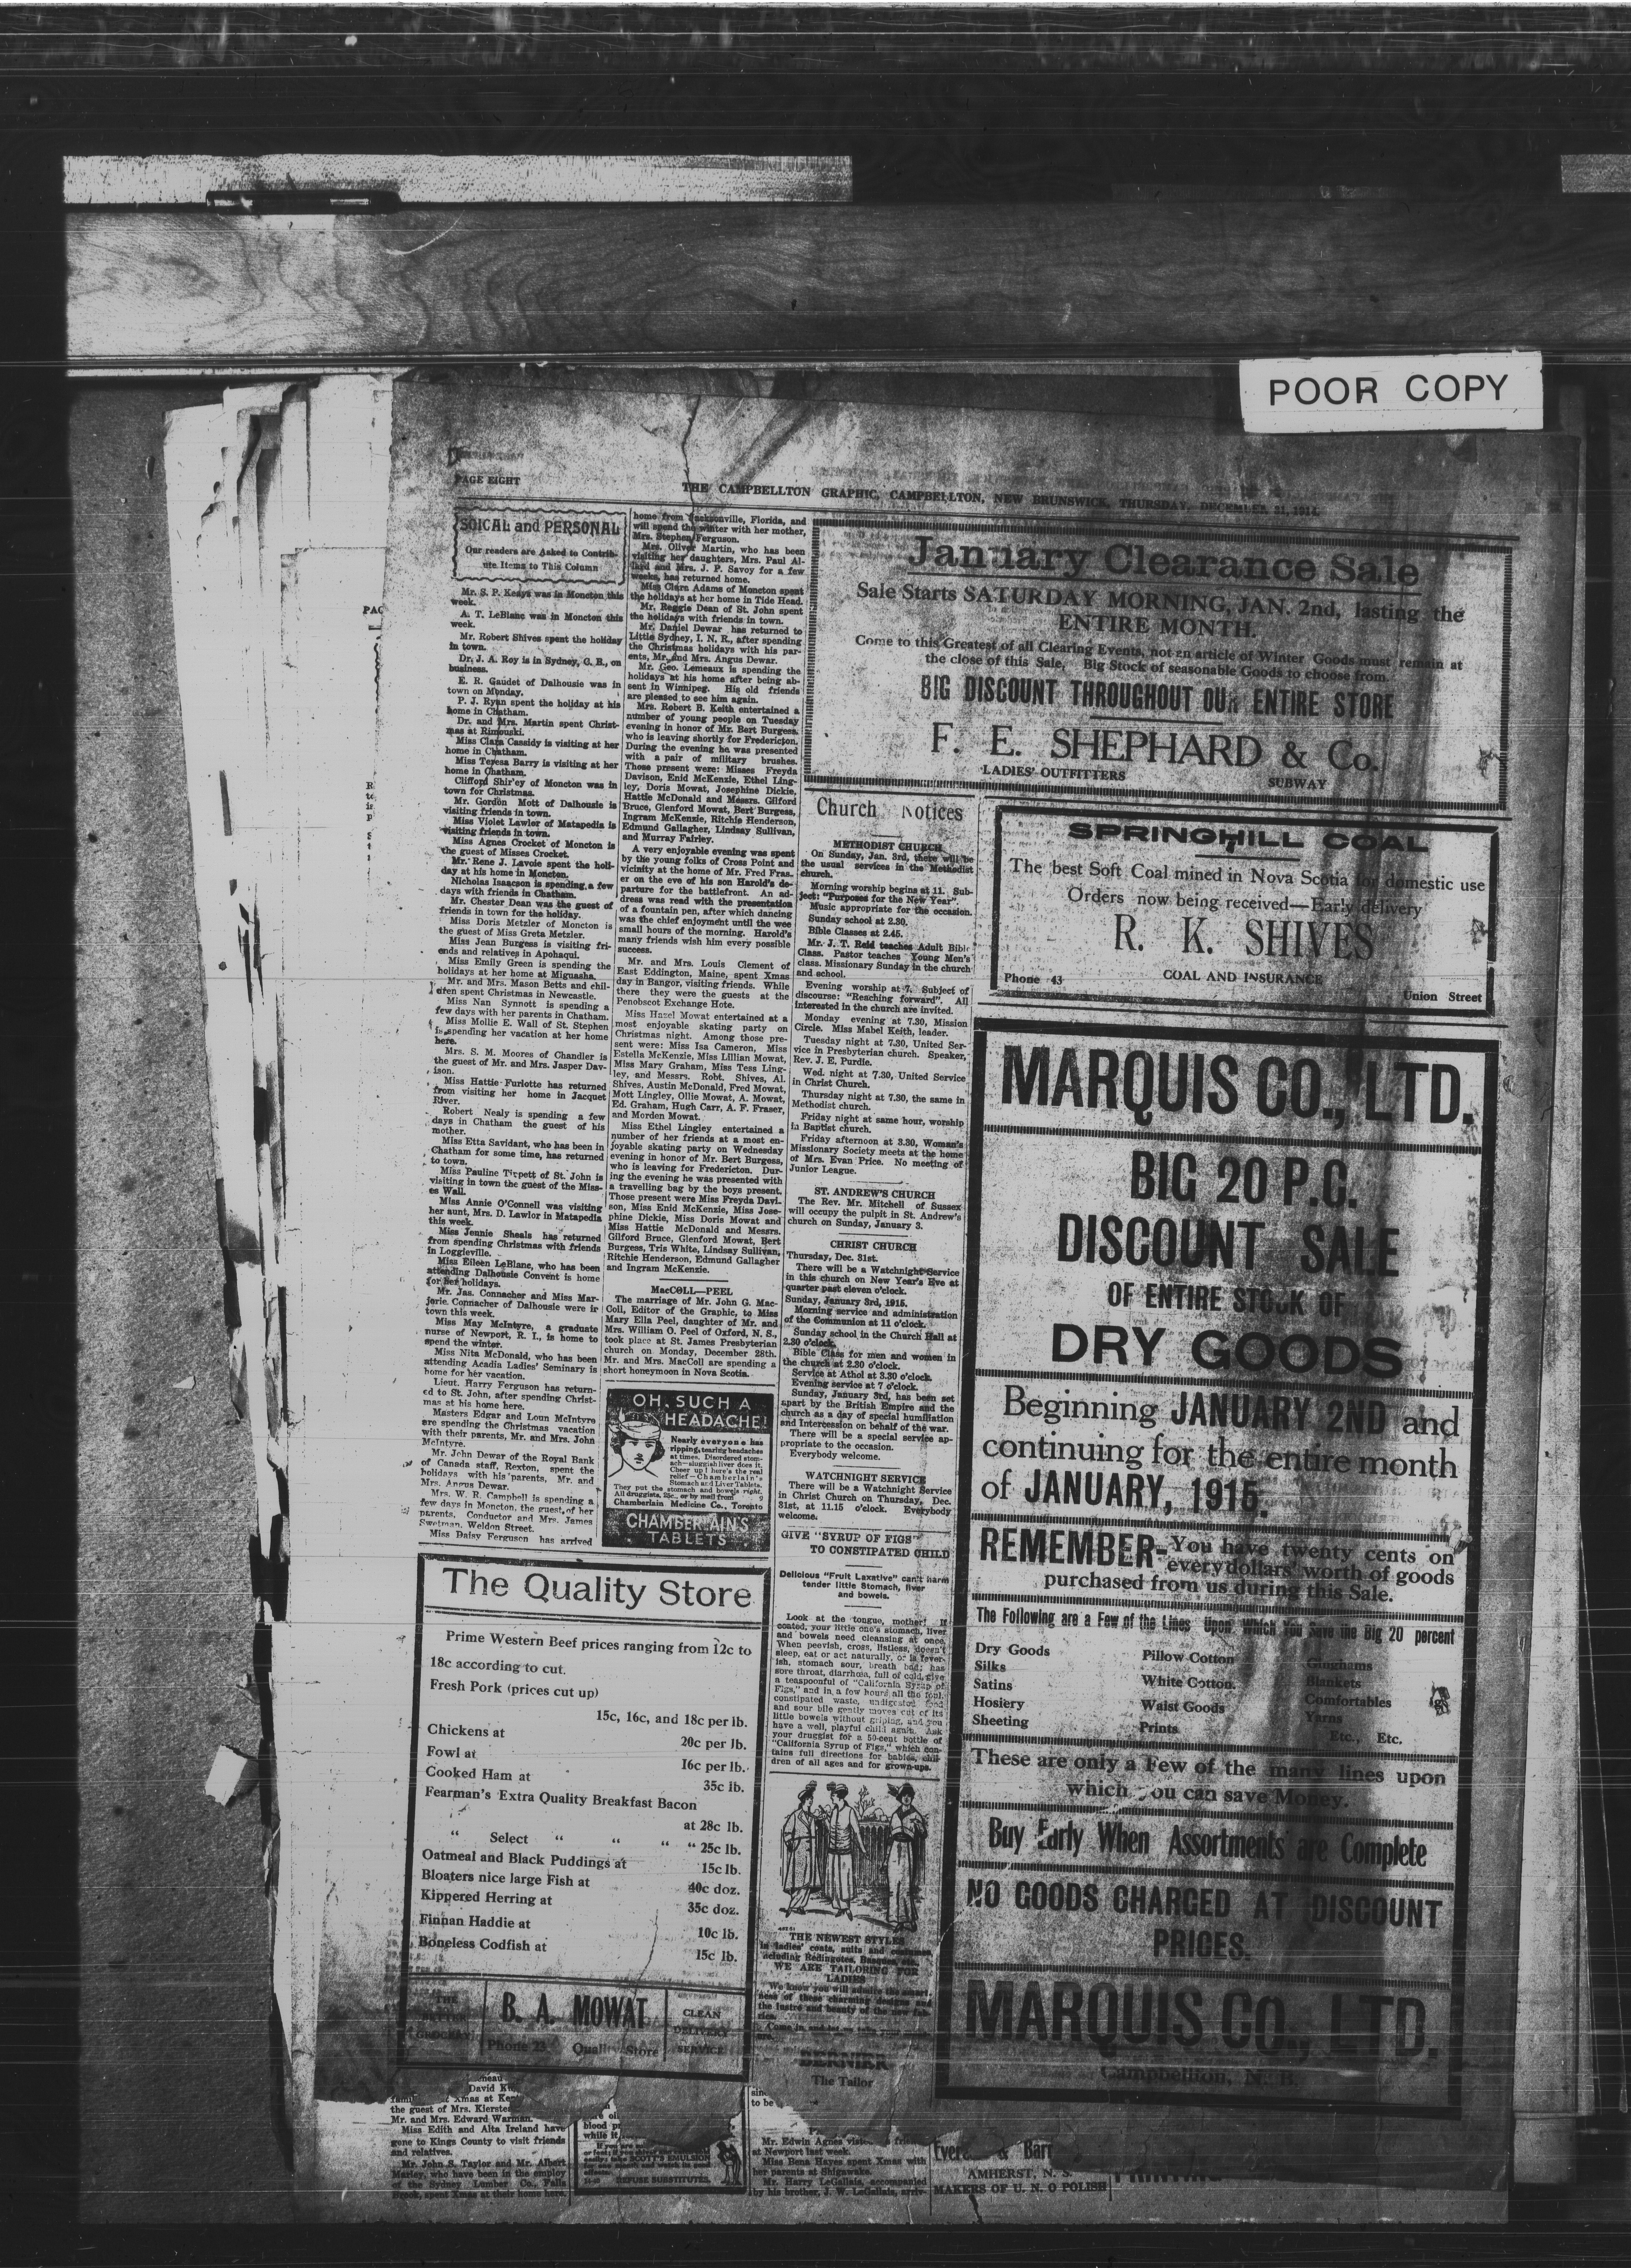 POOR COPY
PAGE EIGHT
THE CAMPBELLTON GRAPHIC, CAMPBELLTON, NEW BRUNSWICK, THURSDAY, DECEMBER 31, 1914.
SOICAL and PERSONAL
Our readers are Asked to Contrib-
ute Items to This Column
Mr. S. P. Keays was in Moncton this
week.
A. T. LeBlanc was in Moncton this
week.
Mr. Robert Shives spent the holiday
in town.
Dr. J. A. Roy is in Sydney, C. B., on
business.
E. R. Gaudet of Dalhousie was in
town on Monday.
P. J. Ryan spent the holiday at his
home in Chatham.
Dr. and Mrs. Martin spent Christ-
mas at Rimouski.
Miss Clara Cassidy is visiting at her
home in Chatham.
Miss Teresa Barry is visiting at her
home in Chatham.
Clifford Shir'ey of Moncton was in
town for Christmas.
Mr. Gordon Mott of Dalhousie is
visiting friends in town.
Miss Violet Lawler of Matapedia is
visiting friends in town.
Miss Agnes Crocket of Moncton is
the guest of Misses Crocket.
Mr. Rene J. Lavoie spent the holi-
day at his home in Moncton.
Nicholas Isaacson is spending a few
days with friends in Chatham.
Mr. Chester Dean was the guest of
friends in town for the holiday.
Miss Doris Metzler of Moncton is
the guest of Miss Greta Metzler.
Miss Jean Burgess is visiting fri-
ends and relatives in Apohaqui.
Miss Emily Green is spending the
holidays at her home at Miguasha.
Mr. and Mrs. Mason Betts and chil-
dren spent Christmas in Newcastle.
Miss Nan Synnott is spending a
few days with her parents in Chatham.
Miss Mollie E. Wall of St. Stephen
is spending her vacation at her home
here.
Mrs. S. M. Moores of Chandler is
the guest of Mr. and Mrs. Jasper Dav-
ison.
Miss Hattie Furlotte has returned
from visiting her home in Jacquet
River.
Robert Nealy is spending a few
days in Chatham the guest of his
mother.
Miss Etta Savidant, who has been in
Chatham for some time, has returned
to town.
Miss Pauline Tippett of St. John is
visiting in town the guest of the Miss-
es Wall.
Miss Annie O'Connell was visiting
her aunt, Mrs. D. Lawlor in Matapedia
this week.
Miss Jennie Sheals has returned
from spending Christmas with friends
in Loggieville.
Miss Eileen LeBlanc, who has been
attending Dalhousie Convent is home
for her holidays.
Mr. Jas. Connacher and Miss Mar-
jerie Connacher of Dalhousie were in
town this week.
Miss May McIntyre, a graduate
nurse of Newport, R. I., is home to
spend the winter.
Miss Nita McDonald, who has been
attending Acadia Ladies' Seminary is
home for her vacation.
Lieut. Harry Ferguson has return-
ed to St. John, after spending Christ-
mas at his home here.
Masters Edgar and Leun McIntyre
are spending the Christmas vacation
with their parents, Mr. and Mrs. John
McIntyre.
Mr. John Dewar of the Royal Bank
of Canada staff, Rexton, spent the
holidays with his parents, Mr. and
Mrs. Angus Dewar.
Mrs. W. R. Campbell is spending a
few days in Moncton, the guest of her
parents, Conductor and Mrs. James
Swetman, Weldon Street.
Miss Daisy Ferguson has arrived
home from Jacksonville, Florida, and
will spend the winter with her mother,
Mrs. Stephen Ferguson.
Mrs. Oliver Martin, who has been
visiting her daughters, Mrs. Paul Al-
lard and Mrs. J. P. Savoy for a few
weeks, has returned home.
Miss Clara Adams of Moncton spent
the holidays at her home in Tide Head.
Mr. Reggie Dean of St. John spent
the holidays with friends in town.
Mr. Daniel Dewar has returned to
Little Sydney, I. N. R., after spending
the Christmas holidays with his par-
ents, Mr. and Mrs. Angus Dewar.
Mr. Geo. Lemeaux is spending the
holidays at his home after being ab-
sent in Winnipeg. His old friends
are pleased to see him again.
Mrs. Robert B. Keith entertained a
number of young people on Tuesday
evening in honor of Mr. Bert Burgess,
who is leaving shortly for Fredericton.
During the evening he was presented
with a pair of military brushes.
Those present were: Misses Freyda
Davison, Enid McKenzie, Ethel Ling-
ley, Doris Mowat, Josephine Dickie,
Hattie McDonald and Messrs. Gilford
Bruce, Glenford Mowat, Bert Burgess,
Ingram McKenzie, Ritchie Henderson,
Edmund Gallagher, Lindsay Sullivan,
and Murray Fairley.
A very enjoyable evening was spent
by the young folks of Cross Point and
vicinity at the home of Mr. Fred Fras.
er on the eve of his son Harold's de-
parture for the battlefront. An ad-
dress was read with the presentation
of a fountain pen, after which dancing
was the chief enjoyment until the wee
small hours of the morning. Harold's
many friends wish him every possible
success.
Mr. and Mrs. Louis Clement of
East Eddington, Maine, spent Xmas
day in Bangor, visiting friends. While
there they were the guests at the
Penobscot Exchange Hote.
Miss Hazel Mowat entertained at a
most enjoyable skating party on
Christmas night. Among those pre-
sent were: Miss Isa Cameron, Miss
Estella McKenzie, Miss Lillian Mowat,
Miss Mary Graham, Miss Tess Ling-
ley, and Messrs. Robt. Shives, Al.
Shives, Austin McDonald, Fred Mowat,
Mott Lingley, Ollie Mowat, A. Mowat,
Ed. Graham, Hugh Carr, A. F. Fraser,
and Morden Mowat.
Miss Ethel Lingley entertained a
number of her friends at a most en-
joyable skating party on Wednesday
evening in honor of Mr. Bert Burgess,
who is leaving for Fredericton. Dur-
ing the evening he was presented with
a travelling bag by the boys present.
Those present were Miss Freyda Davi-
son, Miss Enid McKenzie, Miss Jose-
phine Dickie, Miss Doris Mowat and
Miss Hattie McDonald and Messrs.
Gilford Bruce, Glenford Mowat, Bert
Burgess, Tris White, Lindsay Sullivan,
Ritchie Henderson, Edmund Gallagher
and Ingram McKenzie.
MacCOLL—PEEL
The marriage of Mr. John G. Mac-
Coll, Editor of the Graphic, to Miss
Mary Ella Peel, daughter of Mr. and
Mrs. William O. Peel of Oxford, N. S.,
took place at St. James Presbyterian
church on Monday, December 28th.
Mr. and Mrs. MacColl are spending a
short honeymoon in Nova Scotia.
OH, SUCH A
HEADACHE!
Nearly everyone has
ripping, tearing headaches
at times. Disordered stom-
ach—sluggish liver does it.
Cheer up! here's the real
relief—Chamberlain's
Stomach and Liver Tablets.
They put the stomach and bowels right.
All druggists, 25c., or by mail from
Chamberlain Medicine Co., Toronto
CHAMBERLAIN'S
TABLETS
January Clearance Sale
Sale Starts SATURDAY MORNING, JAN. 2nd, lasting the
ENTIRE MONTH.
Come to this Greatest of all Clearing Events, not an article of Winter Goods must remain at
the close of this Sale. Big Stock of seasonable Goods to choose from.
BIG DISCOUNT THROUGHOUT OUR ENTIRE STORE
F. E. SHEPHARD & Co.
LADIES' OUTFITTERS SUBWAY
Church Notices
METHODIST CHURCH
On Sunday, Jan. 3rd, there will be
the usual services in the Methodist
church.
Morning worship begins at 11. Sub-
ject: "Purposes for the New Year".
Music appropriate for the occasion.
Sunday school at 2.30.
Bible Classes at 2.45.
Mr. J. T. Reid teaches Adult Bible
Class. Pastor teaches Young Men's
class. Missionary Sunday in the church
and school.
Evening worship at 7. Subject of
discourse: "Reaching forward". All
interested in the church are invited.
Monday evening at 7.30, Mission
Circle. Miss Mabel Keith, leader.
Tuesday night at 7.30, United Ser-
vice in Presbyterian church. Speaker,
Rev. J. E. Purdie.
Wed. night at 7.30, United Service
in Christ Church.
Thursday night at 7.30, the same in
Methodist church.
Friday night at same hour, worship
in Baptist church.
Friday afternoon at 3.30, Woman's
Missionary Society meets at the home
of Mrs. Evan Price. No meeting of
Junior League.
ST. ANDREW'S CHURCH
The Rev. Mr. Mitchell of Sussex
will occupy the pulpit in St. Andrew's
church on Sunday, January 3.
CHRIST CHURCH
Thursday, Dec. 31st.
There will be a Watchnight Service
in this church on New Year's Eve at
quarter past eleven o'clock.
Sunday, January 3rd, 1915.
Morning service and administration
of the Communion at 11 o'clock.
Sunday school in the Church Hall at
2.30 o'clock.
Bible Class for men and women in
the church at 2.30 o'clock.
Service at Athol at 3.30 o'clock.
Evening service at 7 o'clock.
Sunday, January 3rd, has been set
apart by the British Empire and the
church as a day of special humiliation
and Intercession on behalf of the war.
There will be a special service ap-
propriate to the occasion.
Everybody welcome.
WATCHNIGHT SERVICE
There will be a Watchnight Service
in Christ Church on Thursday, Dec.
31st, at 11.15 o'clock. Everybody
welcome.
GIVE "SYRUP OF FIGS"
TO CONSTIPATED CHILD
Delicious "Fruit Laxative" can't harm
tender little Stomach, liver
and bowels.
Look at the tongue, mother! If
coated, your little one's stomach, liver
and bowels need cleansing at once.
When peevish, cross, listless, doesn't
sleep, eat or act naturally, or is fever-
ish, stomach sour, breath bad; has
sore throat, diarrhoea, full of cold, give
a teaspoonful of "California Syrup of
Figs," and in a few hours all the foul,
constipated waste, undigested food
and sour bile gently moves out of its
little bowels without griping, and you
have a well, playful child again. Ask
your druggist for a 50-cent bottle of
"California Syrup of Figs," which con-
tains full directions for babies, chil-
dren of all ages and for grown-ups.
THE NEWEST STYLES
in ladies' coats, suits and costumes,
including Redingotes, Basques, etc.
WE ARE TAILORING FOR
LADIES
We know you will admire the smart-
ness of these charming designs and
the lustre and beauty of the new fab-
rics.
Come in and let us take your meas-
ure.
BERNIER
The Tailor
SPRINGHILL COAL
The best Soft Coal mined in Nova Scotia for domestic use
Orders now being received—Early delivery
R. K. SHIVES
Phone 43 COAL AND INSURANCE Union Street
MARQUIS CO., LTD.
BIG 20 P.C.
DISCOUNT SALE
OF ENTIRE STOCK OF
DRY GOODS
Beginning JANUARY 2ND and
continuing for the entire month
of JANUARY, 1915.
REMEMBER- You have twenty cents on
every dollars' worth of goods
purchased from us during this Sale.
The Following are a Few of the Lines Upon which you Save the Big 20 percent
Dry Goods Pillow Cotton Ginghams
Silks White Cotton. Blankets
Satins Waist Goods Comfortables
Hosiery Prints Yarns
Sheeting Etc., Etc.
These are only a Few of the many lines upon
which you can save Money.
Buy Early When Assortments are Complete
NO GOODS CHARGED AT DISCOUNT
PRICES.
MARQUIS CO., LTD.
Campbellton, N. B.
The Quality Store
Prime Western Beef prices ranging from 12c to
18c according to cut.
Fresh Pork (prices cut up)
15c, 16c, and 18c per lb.
Chickens at 20c per lb.
Fowl at 16c per lb.
Cooked Ham at 35c lb.
Fearman's Extra Quality Breakfast Bacon
at 28c lb.
" Select " " " " 25c lb.
Oatmeal and Black Puddings at 15c lb.
Bloaters nice large Fish at 40c doz.
Kippered Herring at 35c doz.
Finnan Haddie at 10c lb.
Boneless Codfish at 15c lb.
THE BETTER GROCERY
B. A. MOWAT
Phone 23 Quality Store
CLEAN DELIVERY SERVICE
David
Xmas at
the guest of Mrs.
Mr. and Mrs. Edward Warman.
Miss Edith and Alta Ireland have
gone to Kings County to visit friends
and relatives.
Mr. John S. Taylor and Mr. Albert
Marley, who have been in the employ
of the Sydney Lumber Co., Falls
Brook, spent Xmas at their home here.
blood
while it
SCOTT'S EMULSION
REFUSE SUBSTITUTES.
to be
Mr. Edwin Agnes
at Newport last week.
Miss Bena Hayes spent Xmas with
her parents at Shigawake.
Mr. Harry LeGallais, accompanied
by his brother, J. W. LeGallais, arriv-
& Barr
AMHERST, N. S.
MAKERS OF U. N. O POLISH